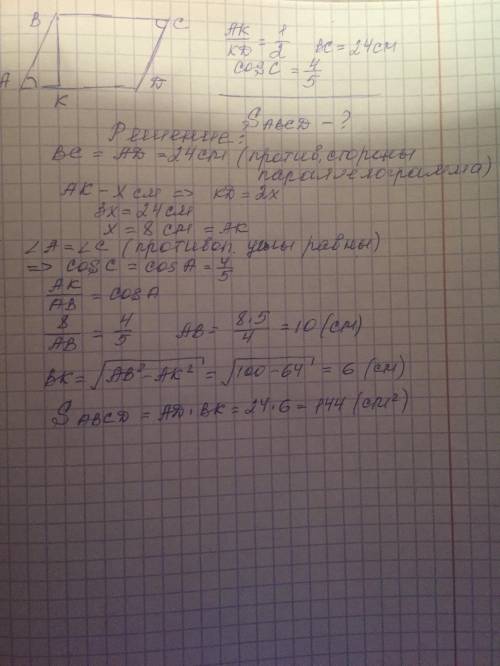 B C
A K D
AK/KD = 1/2 BC = 24 см
cos C = 4/5
S ABCD - ?
Решение:
BC = AD = 24 см (против. стороны
параллелограмма)
AK - x см => KD = 2x
3x = 24 см
x = 8 см = AK
∠A = ∠C (противоп. углы равны)
=> cos C = cos A = 4/5
AK/AB = cos A
8/AB = 4/5 AB = 8·5/4 = 10 (см)
BK = √AB² - AK² = √100 - 64 = 6 (см)
S ABCD = AD · BK = 24 · 6 = 144 (см²)